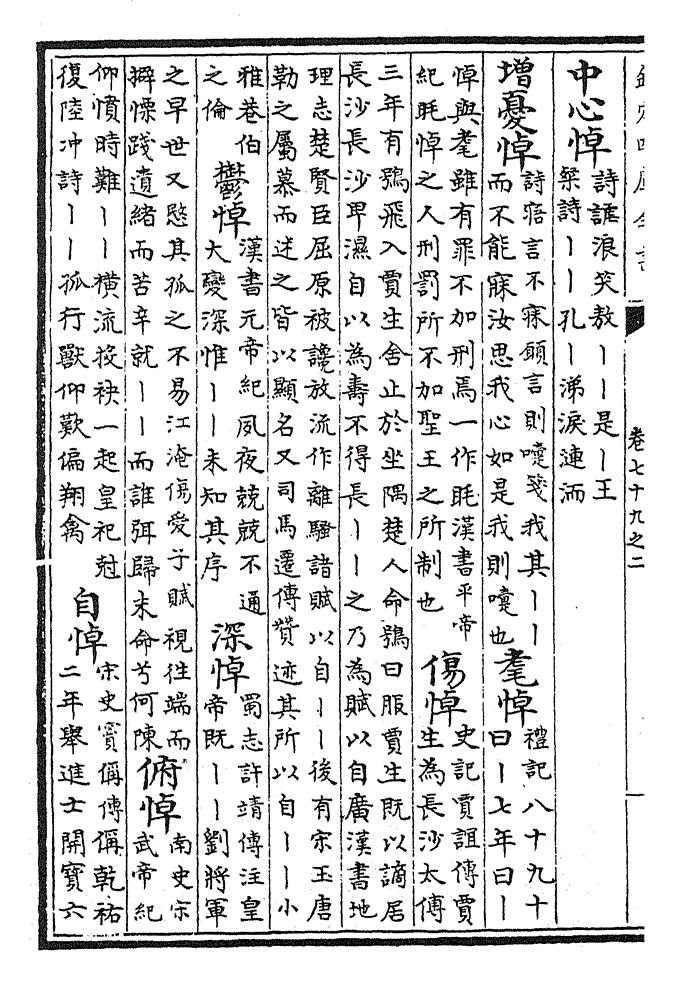 欽定四庫全書
卷七十九之二
中心悼
詩謔浪笑敖丨丨是丨王
粲詩丨丨孔丨涕淚連洏
增憂悼
詩寤言不寐願言則嚏箋我其丨丨
而不能寐汝思我心如是我則嚏也
耄悼
禮記八十九十
曰丨七年曰丨
悼與耄雖有罪不加刑焉一作眊漢書平帝
紀眊悼之人刑罰所不加聖王之所制也
傷悼
史記賈誼傳賈
生為長沙太傅
三年有鴞飛入賈生舍止於坐隅楚人命鴞曰服賈生既以謫居
長沙長沙卑濕自以為壽不得長丨丨之乃為賦以自廣漢書地
理志楚賢臣屈原被讒放流作離騷諸賦以自丨丨後有宋玉唐
勒之屬慕而述之皆以顯名又司馬遷傳贊迹其所以自丨丨小
雅巷伯
之倫
鬱悼
漢書元帝紀夙夜兢兢不通
大變深惟丨丨未知其序
深悼
蜀志許靖傳注皇
帝既丨丨劉將軍
之早世又愍其孤之不易江淹傷愛子賦視往端而
擗慄踐遺緒而苦辛就丨丨而誰弭歸末命兮何陳
俯悼
南史宋
武帝紀
仰憤時難丨丨橫流投袂一起皇祀尅
復陸冲詩丨丨孤行獸仰歎偏翔禽
自悼
宋史竇偁傳偁乾祐
二年舉進士開寶六